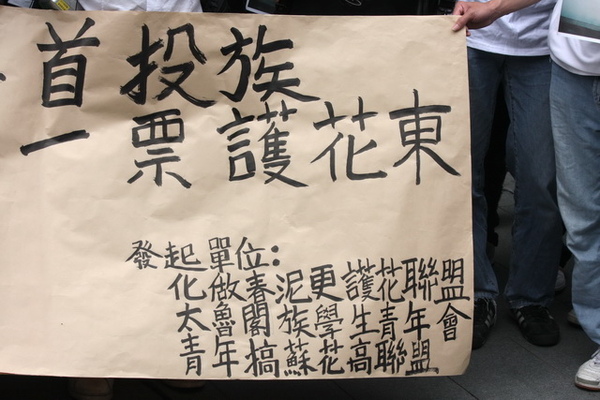 首投族
一票護花東
發起單位:
化做春泥更護花聯盟
太魯閣族學生青年會
青年搞蘇花高聯盟